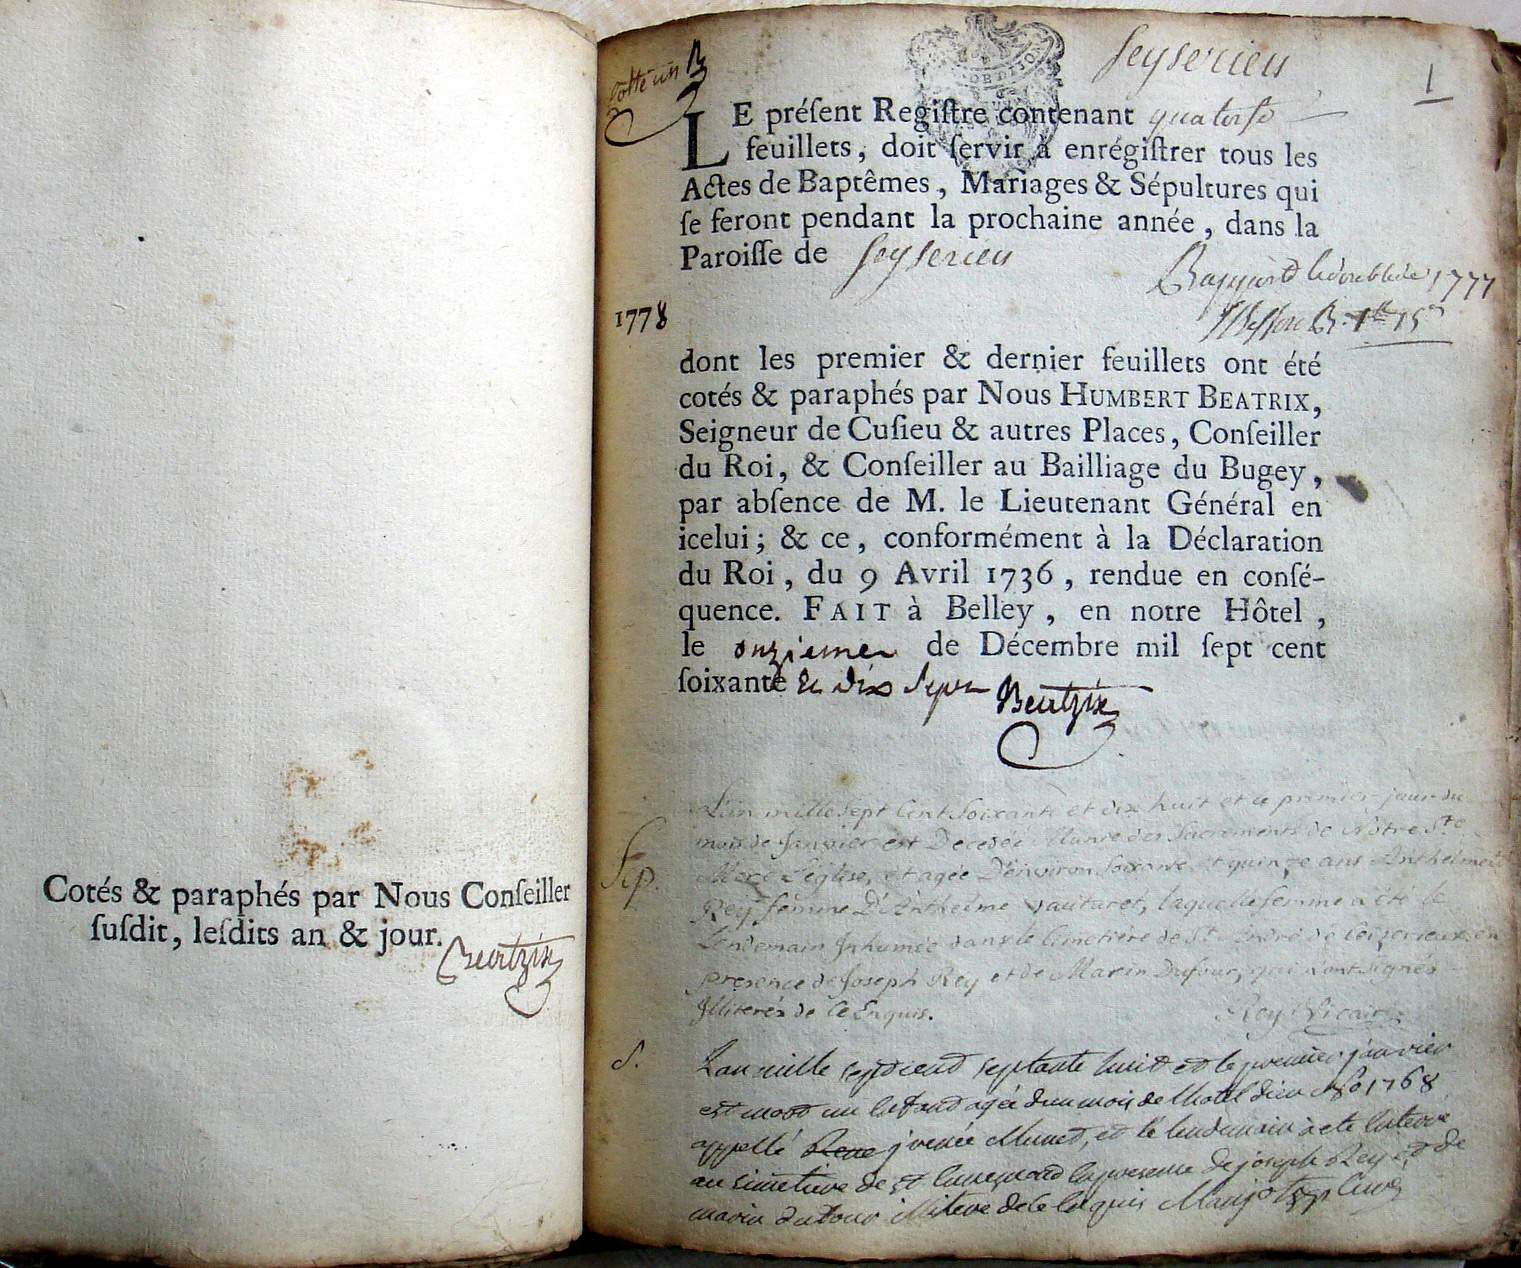 Cotés & paraphés par Nous Conſeiller
ſuſdit, leſdits an & jour.
Beatrix
Seyserieu
1
LE préſent Regiſtre contenant quatorse
feuillets, doit ſervir à enrégiſtrer tous les
Actes de Baptêmes, Mariages & Sépultures qui
ſe feront pendant la prochaine année, dans la
Paroiſſe de Seyserieu
1777
1778
dont les premier & dernier feuillets ont été
cotés & paraphés par Nous HUMBERT BEATRIX,
Seigneur de Cuſieu & autres Places, Conſeiller
du Roi, & Conſeiller au Bailliage du Bugey,
par abſence de M. le Lieutenant Général en
icelui; & ce, conformément à la Déclaration
du Roi, du 9 Avril 1736, rendue en conſé-
quence. FAIT à Belley, en notre Hôtel,
le onzieme de Décembre mil ſept cent
ſoixante et dix sept Beatrix
Sep.
L'an mille sept Cent Soixante et dix huit et le premier jour du
mois de Janvier est Decedée Munie des Sacrements de Nôtre Ste
Mere L'église, et agée D'environ Soixante et quinze ans Anthelmette
Rey femme D'Anthelme Vautaret, laquelle femme a été le
Lendemain Inhumée dans le Cimetière de St André de Ceizerieux en
presence de Joseph Rey et de Marin Dufour, qui n'ont signés
Illiterés de ce Enquis. Rey Vicaire
S.
L'an mille sept cent septante huit et le premier janvier
est mort un enfant agée d'un mois de l'hotel dieu No 1768
appellé jrenée Munet, et le lendemain a eté enterré
au simetiere de st en presence de joseph Rey et de
marin dufour illiteré de ce enquis Curé